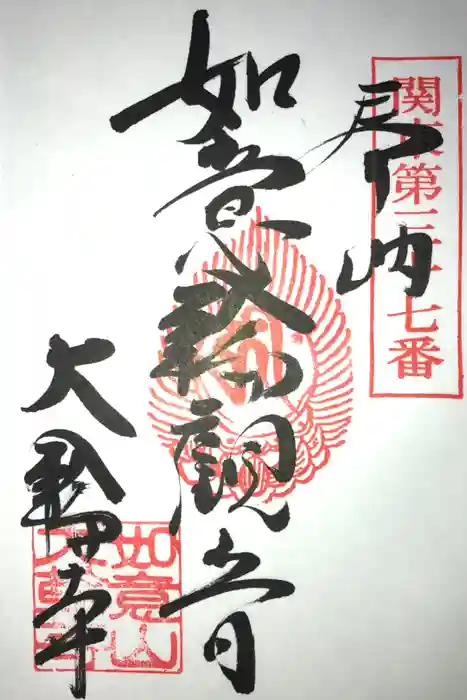 関東第三十七番
奉納
如意輪観音
大輪寺
如意山
大輪寺